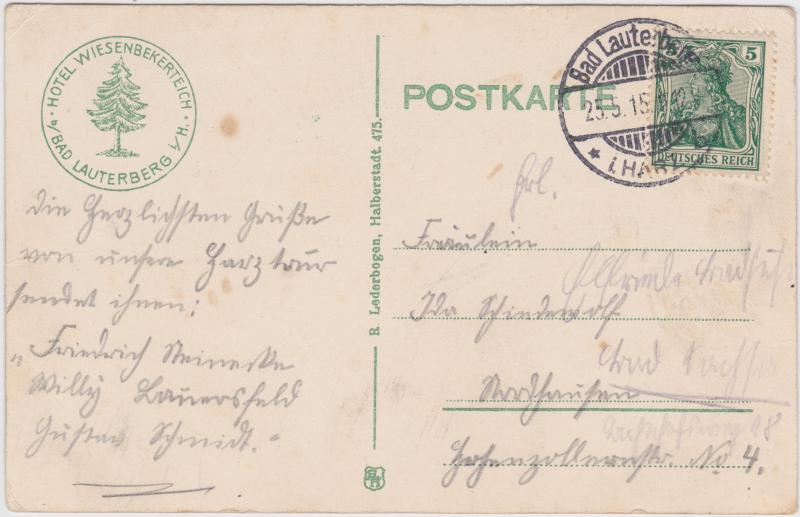 HOTEL WIESENBEKERTEICH
b/BAD LAUTERBERG i/H.
die Herzlichsten Grüße
von unsere Harztour
sendet ihnen:
„Friedrich Steinecke
Willy Lauersfeld
Gustav Schmidt.“
R. Lederbogen, Halberstadt. 475.
POSTKARTE
Bad Lauterberg
25.5.15
i. HARZ
5
DEUTSCHES REICH
Frl.
Fräulein
Ida Schindewolf
Bad Sachsa
Nordhausen
Hohenzollernstr. No 4.